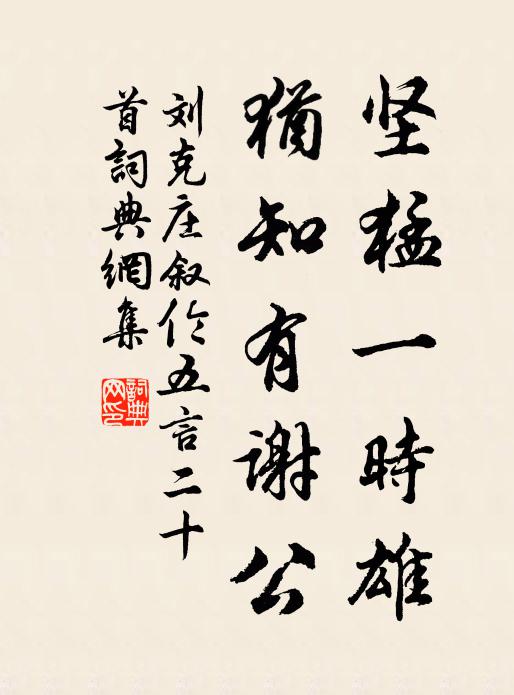 坚猛一時雄
猶知有謝公
刘克庄叙伦五言二十
首詞典網集
詞典
网印